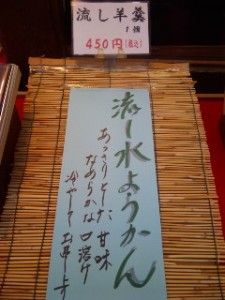 流し羊羹
1個
450円(税込)
流し水ようかん
あっさりとした甘味
なめらかな口溶け
冷やしてお出します